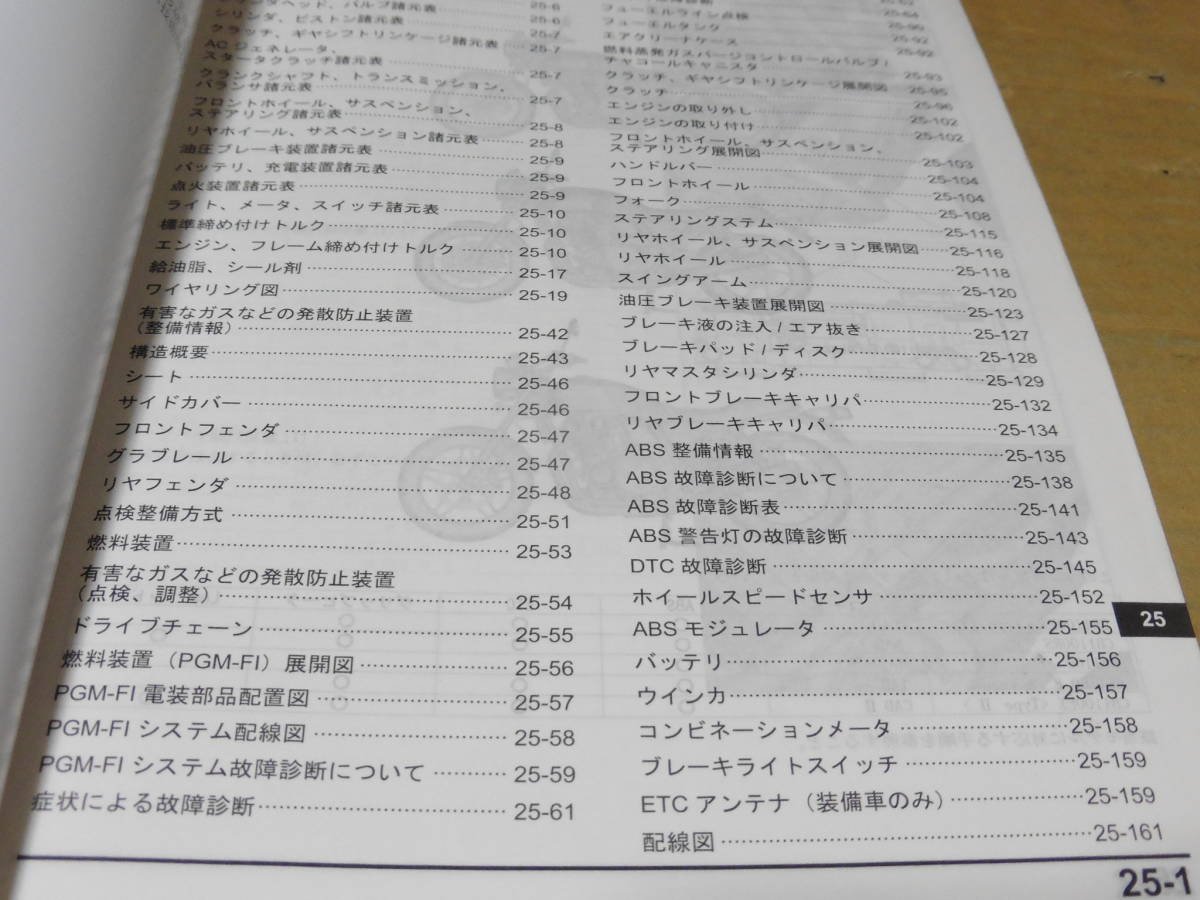 シリンダヘッド、バルブ諸元表 25-6
シリンダ、ピストン諸元表 25-6
クラッチ、ギヤシフトリンケージ諸元表 25-7
AC ジェネレータ、
スタータクラッチ諸元表 25-7
クランクシャフト、トランスミッション、
バランサ諸元表 25-7
フロントホイール、サスペンション、
ステアリング諸元表 25-8
リヤホイール、サスペンション諸元表 25-8
油圧ブレーキ装置諸元表 25-9
バッテリ、充電装置諸元表 25-9
点火装置諸元表 25-9
ライト、メータ、スイッチ諸元表 25-10
標準締め付けトルク 25-10
エンジン、フレーム締め付けトルク 25-10
給油脂、シール剤 25-17
ワイヤリング図 25-19
有害なガスなどの発散防止装置
(整備情報) 25-42
構造概要 25-43
シート 25-46
サイドカバー 25-46
フロントフェンダ 25-47
グラブレール 25-47
リヤフェンダ 25-48
点検整備方式 25-51
燃料装置 25-53
有害なガスなどの発散防止装置
(点検、調整) 25-54
ドライブチェーン 25-55
燃料装置 (PGM-FI) 展開図 25-56
PGM-FI 電装部品配置図 25-57
PGM-FI システム配線図 25-58
PGM-FI システム故障診断について 25-59
症状による故障診断 25-61
フューエルライン点検 25-64
フューエルタンク 25-90
エアクリーナケース 25-92
燃料蒸発ガスパージコントロールバルブ/
チャコールキャニスタ 25-92
クラッチ、ギヤシフトリンケージ展開図 25-93
クラッチ 25-95
エンジンの取り外し 25-96
エンジンの取り付け 25-102
フロントホイール、サスペンション、
ステアリング展開図 25-102
ハンドルバー 25-103
フロントホイール 25-104
フォーク 25-104
ステアリングステム 25-108
リヤホイール、サスペンション展開図 25-115
リヤホイール 25-116
スイングアーム 25-118
油圧ブレーキ装置展開図 25-120
ブレーキ液の注入/エア抜き 25-123
ブレーキパッド/ディスク 25-127
リヤマスタシリンダ 25-128
フロントブレーキキャリパ 25-129
リヤブレーキキャリパ 25-132
ABS 整備情報 25-134
ABS 故障診断について 25-135
ABS 故障診断表 25-138
ABS 警告灯の故障診断 25-141
DTC 故障診断 25-143
ホイールスピードセンサ 25-145
ABS モジュレータ 25-152
バッテリ 25-155
ウインカ 25-156
コンビネーションメータ 25-157
ブレーキライトスイッチ 25-158
ETC アンテナ (装備車のみ) 25-159
配線図 25-159
25-161
25
25-1